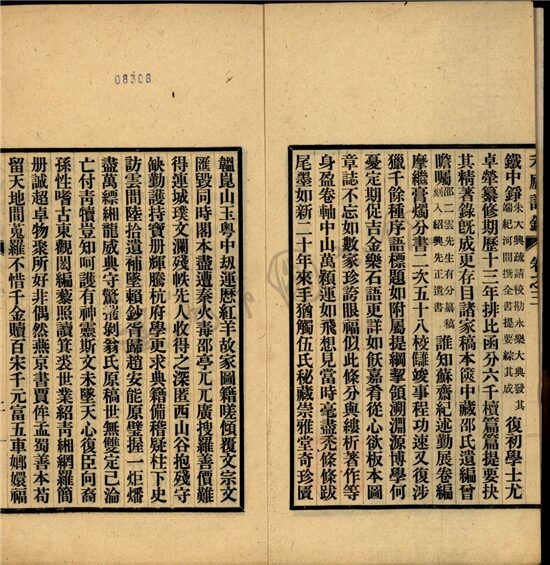 鐵中錚朱大興疏請校勘永樂大典發其端紀河間撰全書提要綜其成復初學士尤
卓犖纂修期歷十三年排比函分六千櫝篇篇提要抉
其精著錄旣成更存目諸家稿本篋中藏邵氏遺編曾
瞻矚邵二雲先生有分纂稿刻入紹興先正遺書誰知蘇齋紀述勤展卷編
摩繼膏燭分書二次五十八校讎竣事程功速又復涉
獵千餘種序語標題如附屬提綱挈領溯淵源博學何
憂定期促吉金樂石語更詳如飫嘉肴從心欲板本圖
章誌不忘如數家珍誇眼福似此條分與縷析著作等
身盈卷軸中山萬穎運如飛想見當時毫盡禿條條跋
尾墨如新二十年來手猶觸伍氏秘藏崇雅堂奇珍匱
韞崑山玉粤中刼運歷紅羊故家圖籍嗟傾覆文宗文
匯毁同時閣本盡遭秦火毒邵亭兀兀廣搜羅善價難
得連城璞文瀾殘帙先人收得之深匿西山谷抱殘守
缺勤護持寶册輝騰杭府學更求典籍備稽疑柱下史
訪雲間陸拾遺補墜賴鈔胥歸趙安能原璧握一炬燔
盡萬縹緗龍威典守驚剝翁氏原稿世無雙定已淪
亡付青犢豈知呵護有神靈斯文未墜天心復臣向裔
孫性嗜古東觀閎編藜照讀箕裘世業紹青緗網羅簡
册誠超卓物聚所好非偶然燕京書賈侔孟蜀善本苟
留天地間蒐羅不惜千金贖百宋千元富五車嫏嬛福
08308